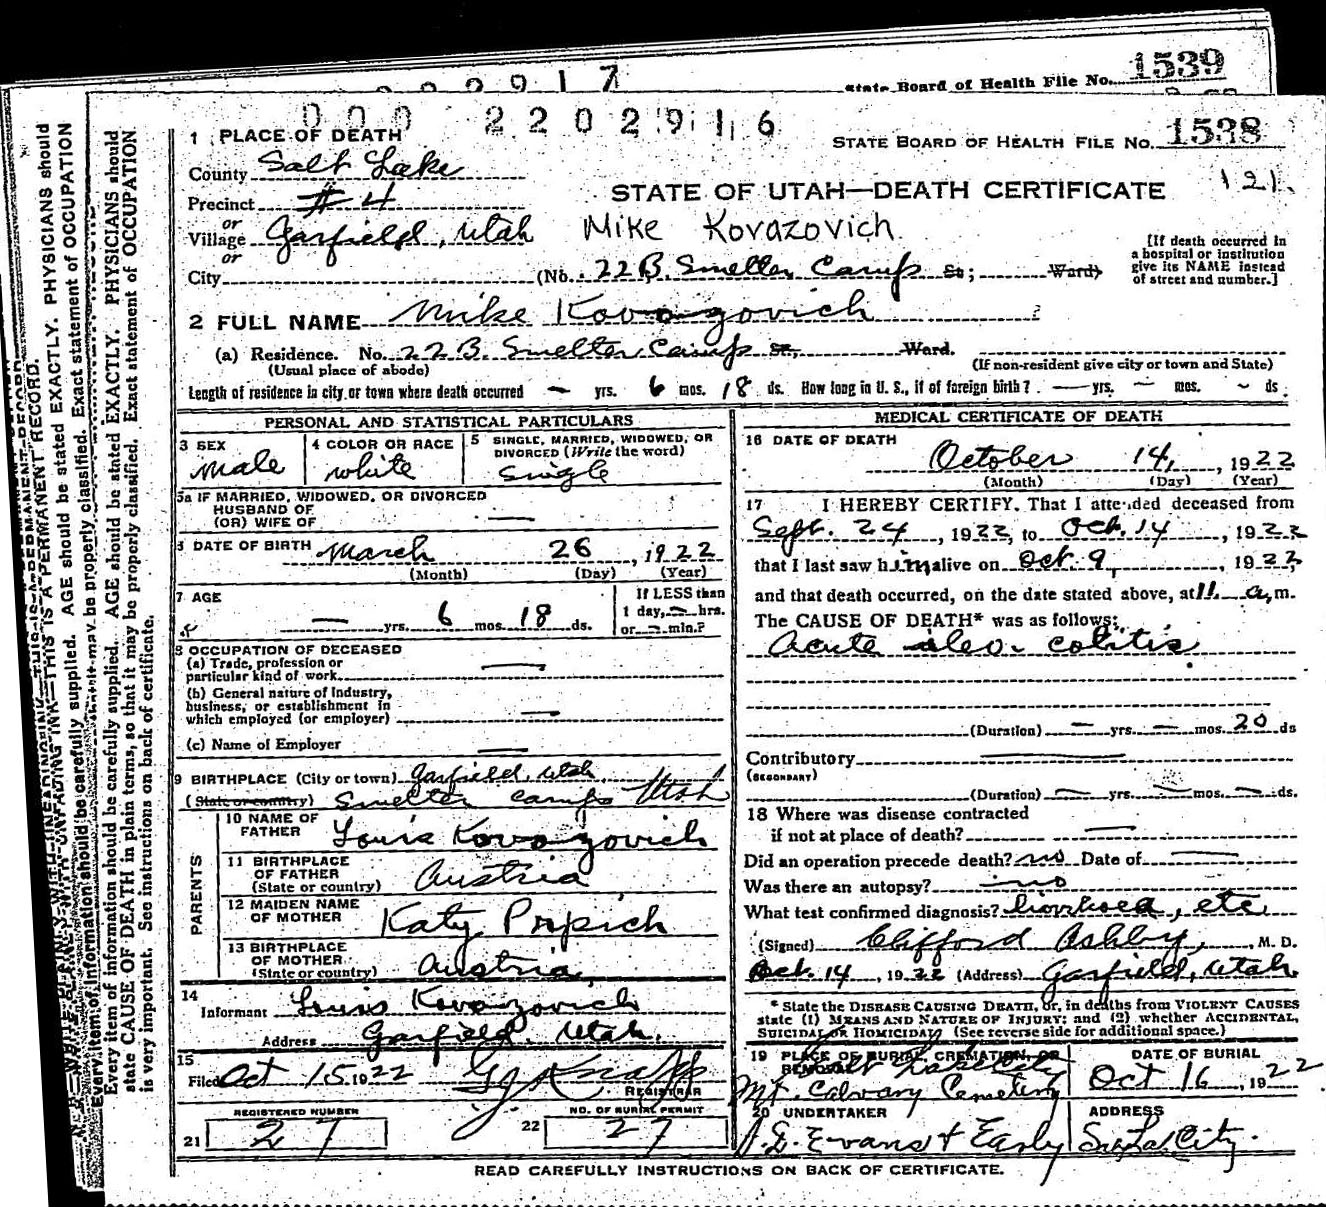 2917
State Board of Health File No. 1539
000 2202916
STATE BOARD OF HEALTH FILE NO. 1538
121.
STATE OF UTAH—DEATH CERTIFICATE
1 PLACE OF DEATH
County Salt Lake
Precinct #4
or
Village Garfield, Utah Mike Kovazovich
or
City (No. 22B. Smelter Camp St; Ward)
[If death occurred in
a hospital or institution
give its NAME instead
of street and number.]
2 FULL NAME Mike Kovazovich ?
(a) Residence. No. 22B. Smelter Camp St, Ward.
(Usual place of abode) (If non-resident give city or town and State)
Length of residence in city or town where death occurred — yrs. 6 mos. 18 ds. How long in U. S., if of foreign birth? — yrs. — mos. — ds.
PERSONAL AND STATISTICAL PARTICULARS
3 SEX
Male
4 COLOR OR RACE
white
5 SINGLE, MARRIED, WIDOWED, OR
DIVORCED (Write the word)
Single
5a IF MARRIED, WIDOWED, OR DIVORCED
HUSBAND OF
(OR) WIFE OF —
6 DATE OF BIRTH March 26, 1922
(Month) (Day) (Year)
7 AGE
— yrs. 6 mos. 18 ds.
If LESS than
1 day, — hrs.
or — min.?
8 OCCUPATION OF DECEASED
(a) Trade, profession or
particular kind of work —
(b) General nature of Industry,
business, or establishment in
which employed (or employer) —
(c) Name of Employer —
9 BIRTHPLACE (City or town) Garfield, Utah
(State or country) Smelter Camp Utah
PARENTS
10 NAME OF
FATHER Louis Kovazovich
11 BIRTHPLACE
OF FATHER
(State or country) Austria
12 MAIDEN NAME
OF MOTHER Katy Pripich
13 BIRTHPLACE
OF MOTHER
(State or country) Austria
14
Informant Louis Kovazovich
Address Garfield, Utah.
15
Filed Oct 15, 1922
REGISTRAR
REGISTERED NUMBER
21 27
NO. OF BURIAL PERMIT
22 27
MEDICAL CERTIFICATE OF DEATH
16 DATE OF DEATH
October 14, , 1922
(Month) (Day) (Year)
17 I HEREBY CERTIFY, That I attended deceased from
Sept. 24, 1922, to Oct. 14, 1922
that I last saw him alive on Oct. 9, 1922,
and that death occurred, on the date stated above, at 11. a.m.
The CAUSE OF DEATH* was as follows:
Acute ileo-colitis
(Duration) — yrs. — mos. 20 ds
Contributory —
(SECONDARY)
(Duration) — yrs. — mos. — ds.
18 Where was disease contracted
if not at place of death? —
Did an operation precede death? no Date of —
Was there an autopsy? no
What test confirmed diagnosis? diorrhoea, etc
(Signed) Clifford Ashby, , M. D.
Oct. 14, 1922 (Address) Garfield, Utah.
* State the DISEASE CAUSING DEATH, or, in deaths from VIOLENT CAUSES
state (1) MEANS AND NATURE OF INJURY; and (2) whether ACCIDENTAL,
SUICIDAL or HOMICIDAL. (See reverse side for additional space.)
19 PLACE OF BURIAL, CREMATION, OR
REMOVAL Salt Lake City
Mt. Calvary Cemetery
DATE OF BURIAL
Oct 16, 1922
20 UNDERTAKER
Evans & Early
ADDRESS
City.
READ CAREFULLY INSTRUCTIONS ON BACK OF CERTIFICATE.
Every item of information should be carefully supplied. AGE should be stated EXACTLY. PHYSICIANS should
state CAUSE OF DEATH in plain terms, so that it may be properly classified. Exact statement of OCCUPATION
is very important. See instructions on back of certificate.